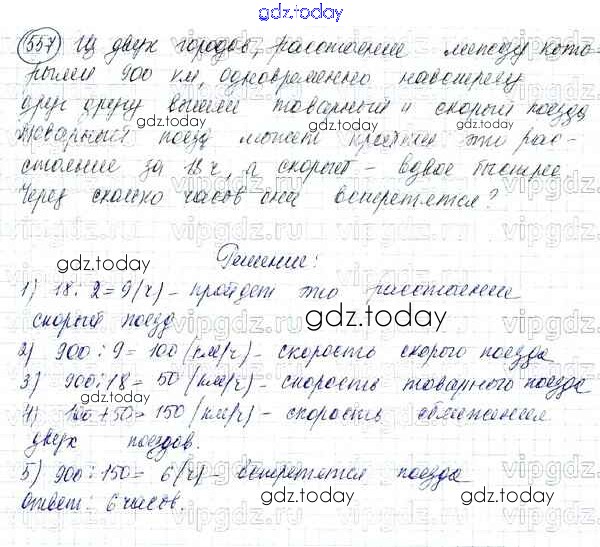 gdz.today
557 Из двух городов, расстояние между кото-
рыми 900 км, одновременно навстречу
друг другу вышли товарный и скорый поезда
Товарный поезд может пройти это рас-
стояние за 18 ч, а скорый - вдвое быстрее.
Через сколько часов они встретятся?
Решение:
1) 18 : 2 = 9 (ч) - пройдет это расстояние
скорый поезд
2) 900 : 9 = 100 (км/ч) - скорость скорого поезда
3) 900 : 18 = 50 (км/ч) - скорость товарного поезда
4) 100 + 50 = 150 (км/ч) - скорость сближения
двух поездов.
5) 900 : 150 = 6 (ч) - встретятся поезда
Ответ: 6 часов.